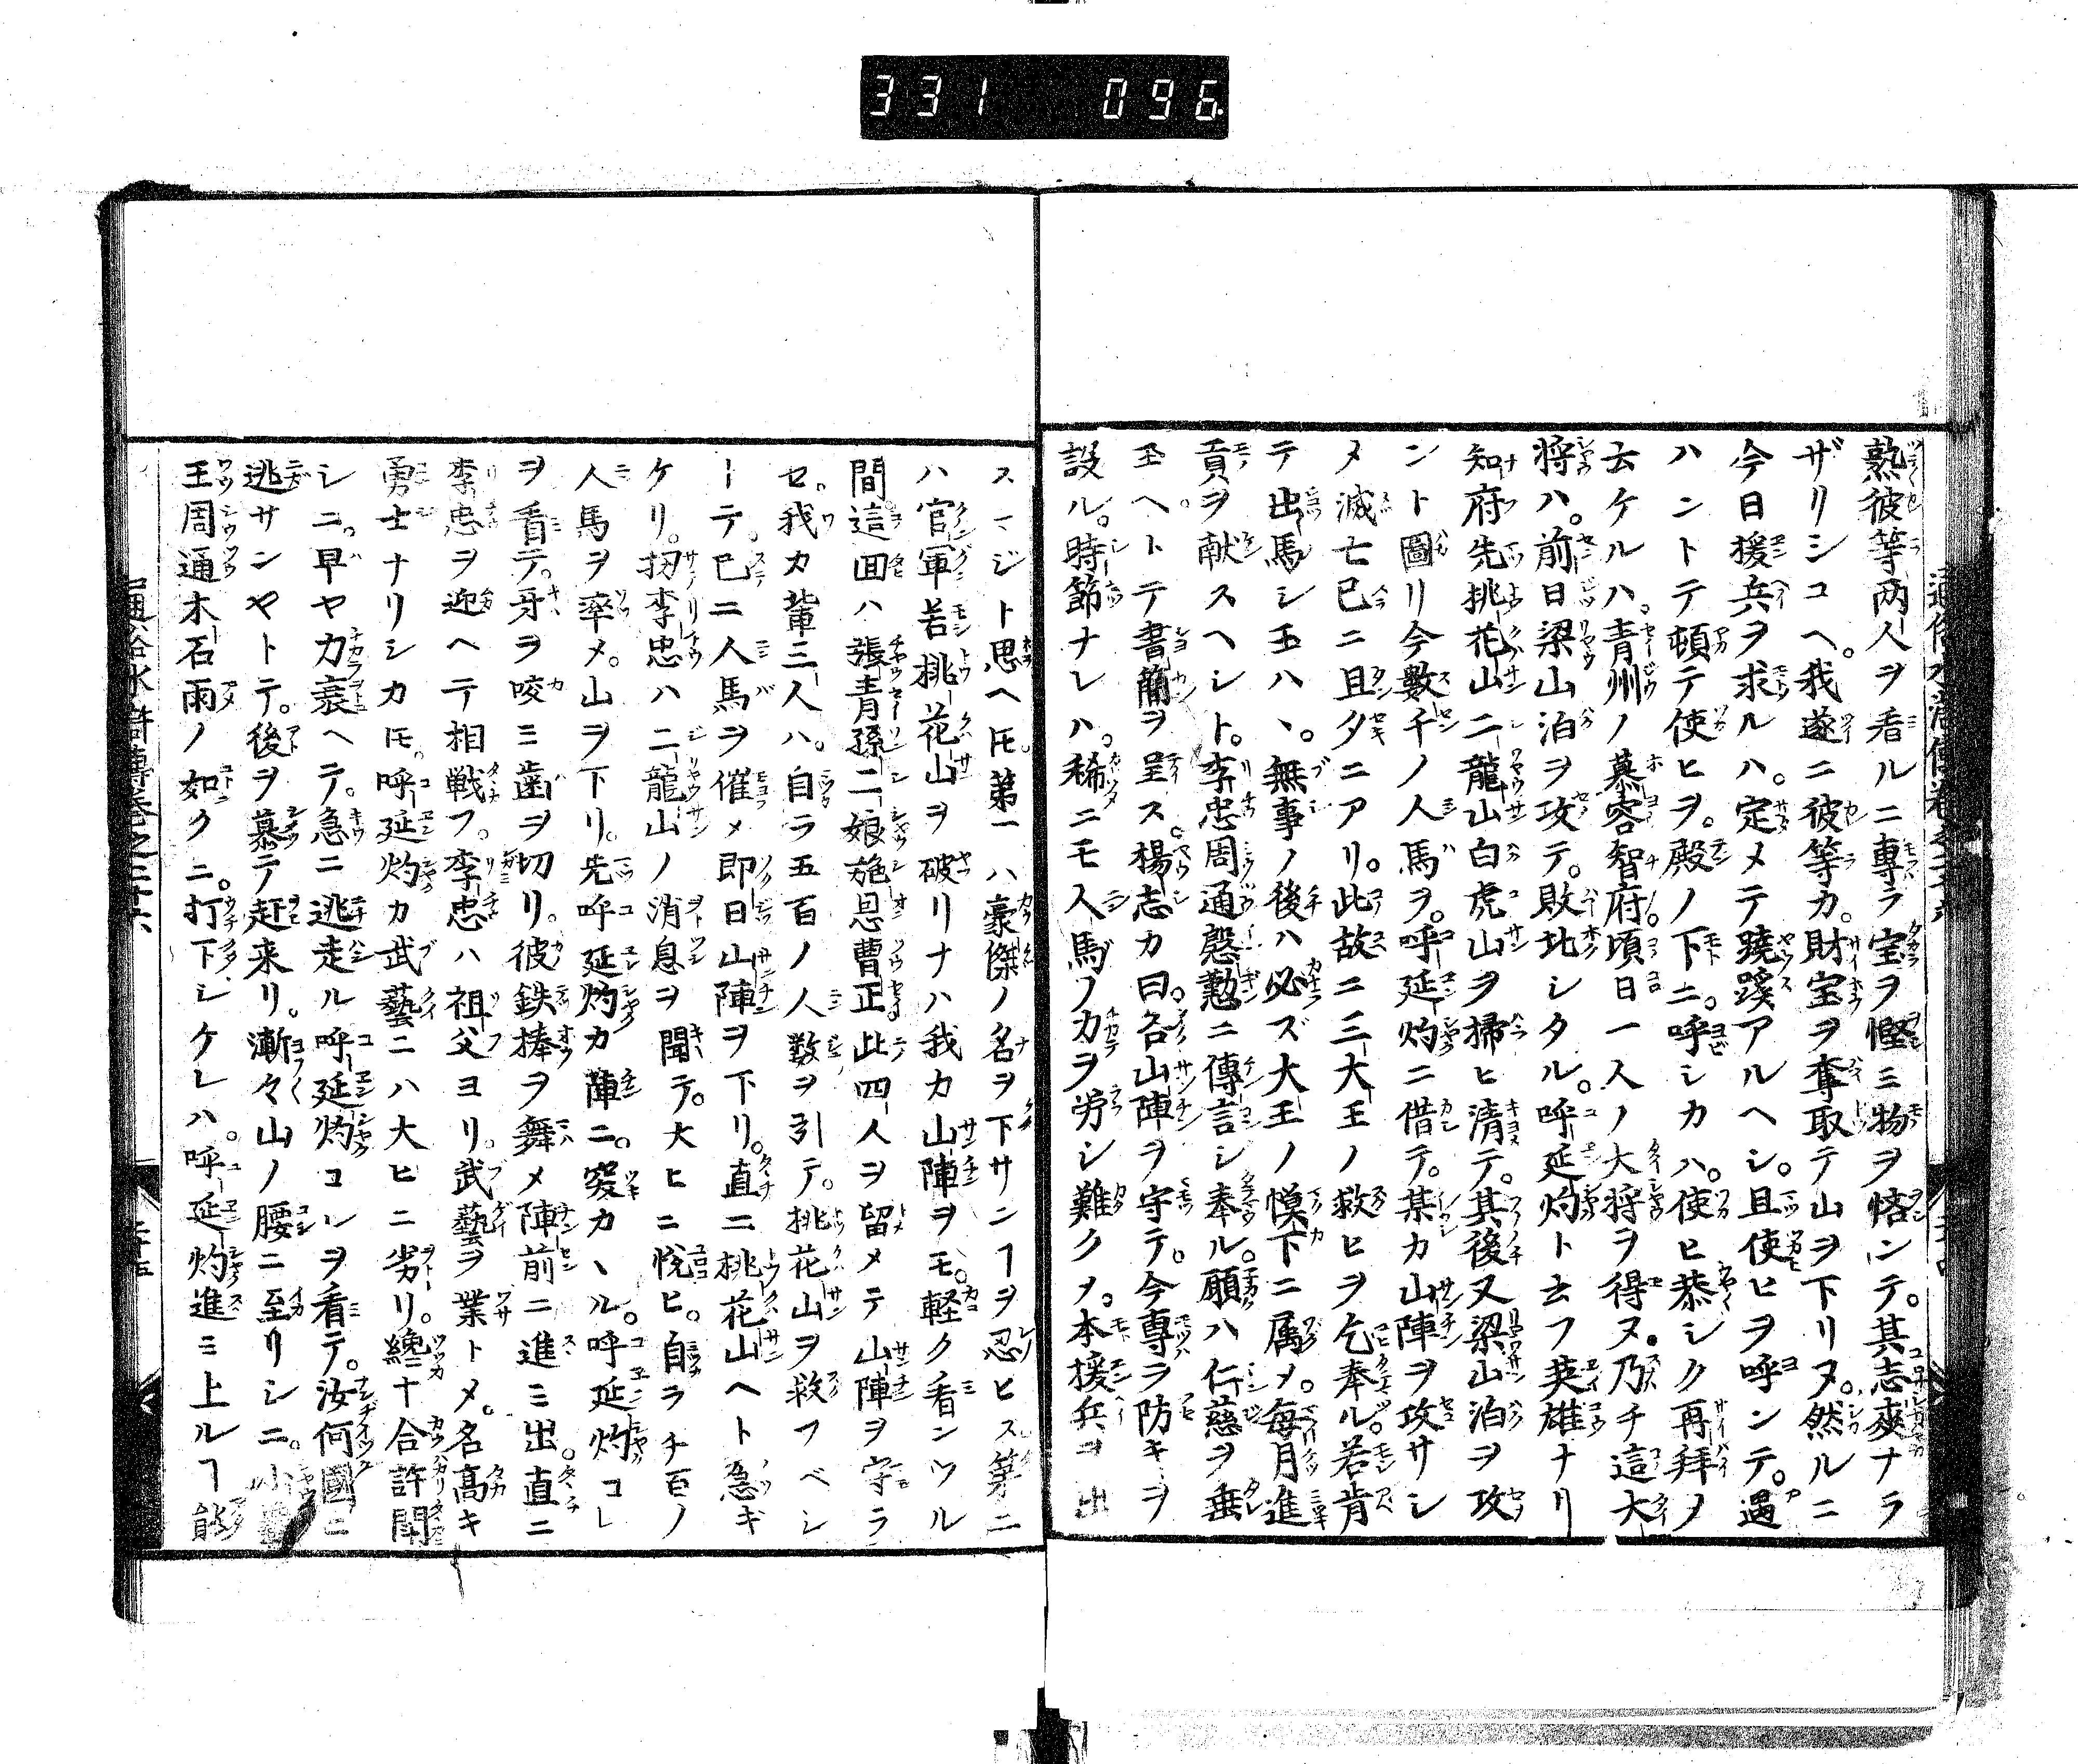 331 096
熟彼等两人ヲ看ルニ專ラ宝ヲ慳ミ物ヲ悋ンテ。其志爽ナラ
ザリシユヘ。我遂ニ彼等カ。財宝ヲ奪取テ山ヲ下リヌ。然ルニ
今日援兵ヲ求ルハ。定メテ蹺蹊アルヘシ。且使ヒヲ呼ンテ。遇
ハントテ頓テ使ヒヲ。殿ノ下ニ。呼シカハ。使ヒ恭シク再拜ノ
云ケルハ。青州ノ慕容智府。頃日一人ノ大將ヲ得ヌ。乃チ這大
將ハ。前日梁山泊ヲ攻テ。敗北シタル。呼延灼ト云フ英雄ナリ
知府先桃花山二龍山白虎山ヲ掃ヒ清テ。其後又梁山泊ヲ攻
ント圖リ今數千ノ人馬ヲ。呼延灼ニ借テ。某カ山陣ヲ攻サシ
メ滅亡已ニ且夕ニアリ。此故ニ三大王ノ救ヒヲ乞奉ル。若肯
テ出馬シ玉ハヽ。無事ノ後ハ必ズ大王ノ幙下ニ属メ。每月進
貢ヲ献スヘシト。李忠周通慇懃ニ傳言シ奉ル。願ハ仁慈ヲ垂
玉ヘトテ書簡ヲ呈ス。楊志カ曰。各山陣ヲ守テ。今專ラ防キヲ
設ル。時節ナレハ。稀ニモ人馬ノ力ヲ労シ難クメ。本援兵ヲ出
スマジト思ヘ𪜈。第一ハ豪傑ノ名ヲ下サンヿヲ忍ヒス第二
ハ官軍若桃花山ヲ破リナハ我カ山陣ヲモ。軽ク看ンツル
間。這回ハ張青孫二娘施恩曹正。此四人ヲ留メテ山陣ヲ守ラ
セ。我カ輩三人ハ。自ラ五百ノ人数ヲ引テ。桃花山ヲ救フベシ
ーテ。已ニ人馬ヲ催メ即日山陣ヲ下リ。直ニ桃花山ヘト急ギ
ケリ。扨李忠ハ二龍山ノ消息ヲ聞テ。大ヒニ悅ヒ。自ラチ百ノ
人馬ヲ率メ。山ヲ下リ。先呼延灼カ陣ニ。突カヽル。呼延灼コレ
ヲ看テ。牙ヲ咬ミ歯ヲ切リ。彼鉄捧ヲ舞メ陣前ニ進ミ出。直ニ
李忠ヲ迎ヘテ相戦フ。李忠ハ祖父ヨリ。武藝ヲ業トメ。名高キ
勇士ナリシカ𪜈。呼延灼カ武藝ニハ大ヒニ劣リ。纔ニ十合許闘
シニ。早ヤ力衰ヘテ。急ニ逃走ル呼延灼コレヲ看テ。汝何國ニ
逃サンヤトテ。後ヲ慕テ赶来リ。漸々山ノ腰ニ至リシニ。小
王周通木石雨ノ如クニ。打下シケレハ。呼延灼進ミ上ルヿ能
通俗水滸傳卷之二十六